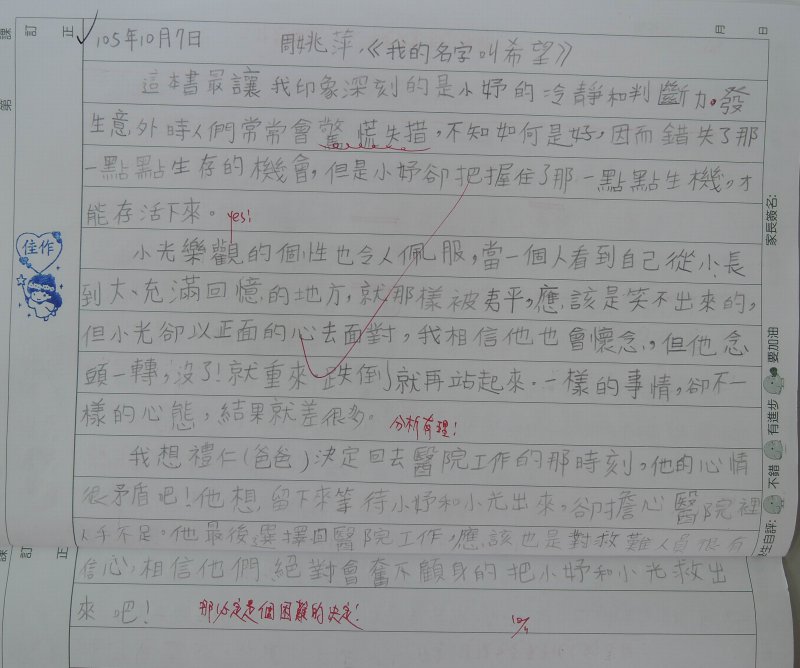 課 訂 正
月 日
第
105年10月7日 周姚萍,《我的名字叫希望》
這本書最讓我印象深刻的是小妤的冷靜和判斷力。發
生意外時人們常常會驚慌失措,不知如何是好,因而錯失了那
一點點生存的機會,但是小妤卻把握住了那一點點生機,才
能存活下來。yes!
家長簽名:
佳作
小光樂觀的個性也令人佩服,當一個人看到自己從小長
到大、充滿回憶的地方,就那樣被夷平,應該是笑不出來的,
但小光卻以正面的心去面對,我相信他也會懷念,但他念
頭一轉,沒了!就重來,跌倒,就再站起來.一樣的事情,卻不一
樣的心態,結果就差很多。分析有理!
我想禮仁(爸爸)決定回去醫院工作的那時刻,他的心情
很矛盾吧!他想留下來等待小妤和小光出來,卻擔心醫院裡
人手不足。他最後選擇回醫院工作,應該也是對救難人員很有
信心,相信他們絕對會奮不顧身的把小妤和小光救出
來吧! 那定是個困難的決定!
生自評: 不錯 有進步 要加油
課 訂 正